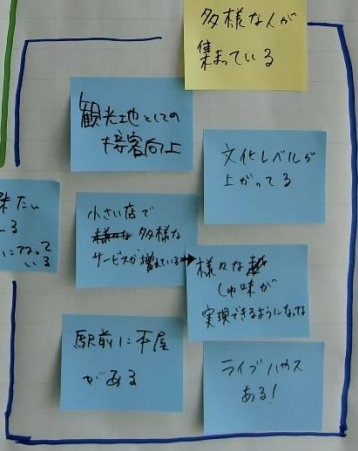 多様な人が
集まっている
観光地としての
接客向上
文化レベルが
上がってる
小さい店で
多様な
サービスが増えている
様々な
しゅ味が
実現できるようになってる
駅前に本屋
がある
ライブハウス
ある!
になって
いる